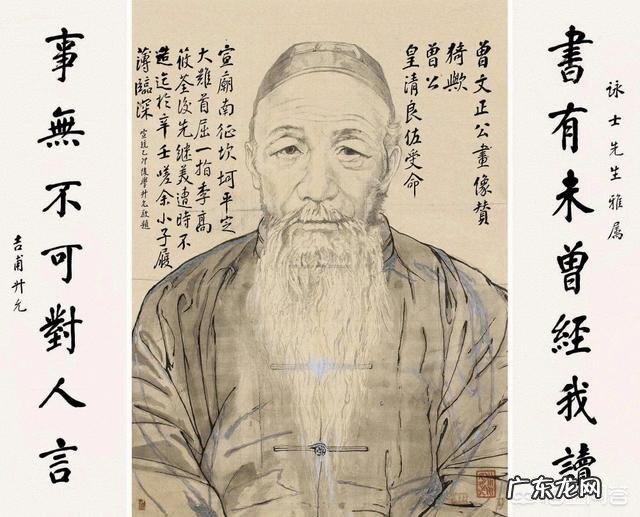 詠士先生雅屬
書有未曾經我讀
曾文正公畫像贊
猗歟
曾公
皇清良佐受命
宣廟南征坎坷平定
大難首屈一指李高
筱荃後先繼美遭時不
造迄於辛壬嗟余小子履
薄臨深
宣統乙卯後學升允敬題
事無不可對人言
吉甫升允
广东龙网